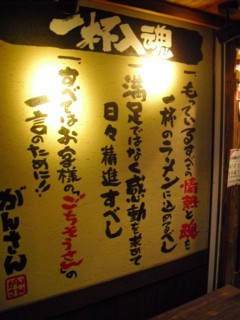 一杯入魂
一、もっているすべての情熱と魂を
一杯のラーメンに込めるべし
一、満足ではなく感動を求めて
日々精進すべし
一、すべてはお客様の、ごちそうさんの
一言のために!!
がんさん